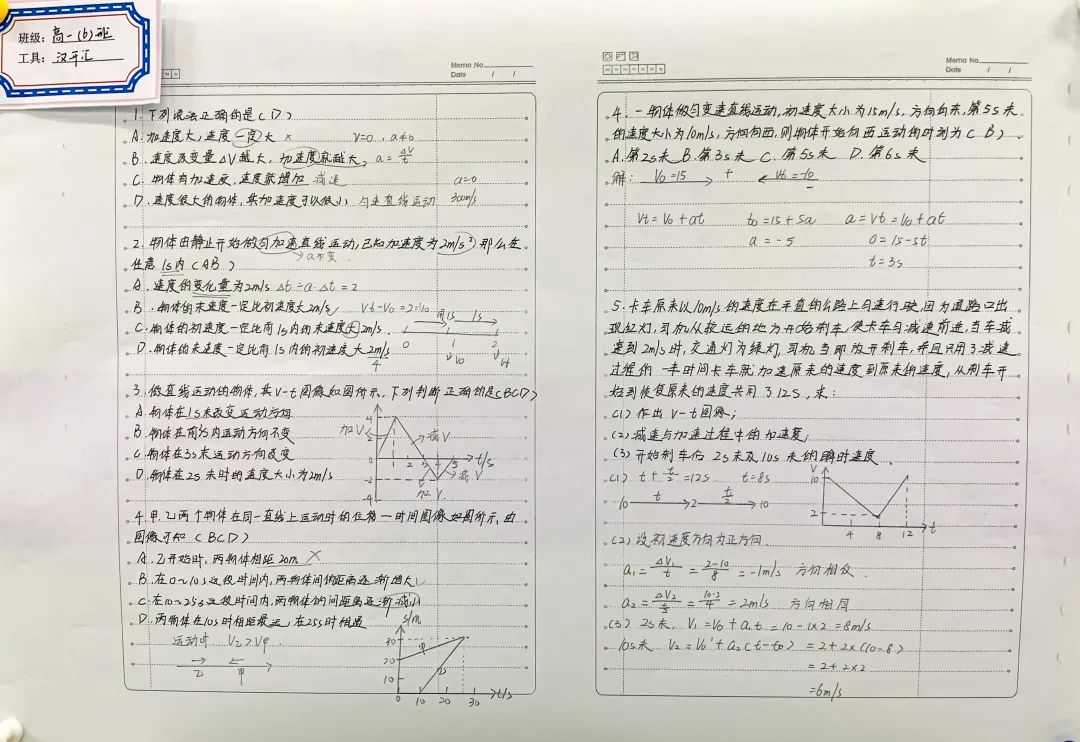 班级：高一(6)班
工具：汉字汇
Memo No.
Date / /
1. 下列说法正确的是(D)
A. 加速度大，速度一定大 × v=0, a≠0
B. 速度改变量ΔV越大，加速度就越大，a=ΔV/t
C. 物体有加速度，速度就增加 减速 a=0
D. 速度很大的物体，其加速度可以很小 匀速直线运动 300m/s
2. 物体由静止开始做匀加速直线运动，已知加速度为2m/s² 那么在
→a不变
任意1s内(AB)
A. 速度的变化量为2m/s Δt=a·Δt=2
B. 物体的末速度一定比初速度大2m/s，Vt-V0=2
C. 物体的初速度一定比前1s内的末速度大2m/s. 前1s 1s
0 1 2
V0 Vt
D. 物体的末速度一定比前1s内的初速度大2m/s
4
3. 做直线运动的物体，其v-t图像如图所示，下列判断正确的是(BCD)
A. 物体在1s末改变运动方向
B. 物体在前3s内运动方向不变
C. 物体在3s末运动方向改变
D. 物体在2s末时的速度大小为2m/s
加V 减V 减V 加V
4 2 0 -2 -4
1 2 3 4 5 t/s
4. 甲.乙两个物体在同一直线上运动时的位移一时间图像如图所示，由
图像可知 (BCD)
A. 乙开始时，两物体相距20m ×
B. 在0~10s这段时间内，两物体间的距离逐渐增大
C. 在10~25s这段时间内，两物体的间距离逐渐减小
D. 两物体在10s时相距最远，在25s时相遇
运动时 V乙>V甲
乙 甲
s/m
30 20 10
甲 乙
0 10 20 30 t/s
Memo No.
Date / /
4. 一物体做匀变速直线运动，初速度大小为15m/s，方向向东，第5s末
的速度大小为10m/s，方向向西，则物体开始向西运动的时刻为(B)
A. 第2s末 B. 第3s末 C. 第5s末 D. 第6s末
解: V0=15 + Vt=-10
Vt=V0+at t0=15+5a a=Vt=V0+at
a=-5 0=15-5t
t=3s
5. 卡车原来以10m/s的速度在平直的公路上匀速行驶，因为道路口出
现红灯，司机从较远的地方开始刹车，使卡车匀减速前进，当车减
速到2m/s时，交通灯为绿灯，司机当即放开刹车，并且只用了减速
过程的一半时间卡车就加速原来的速度到原来的速度，从刹车开
始到恢复原来的速度共用了12s，求：
(1) 作出v-t图像；
(2) 减速与加速过程中的加速度；
(3) 开始刹车后2s末及10s末的瞬时速度.
(1) t+t/2=12s t=8s
10 t 2 t/2 10
V
10
2
4 8 12 t
(2) 设初速度方向为正方向
a1=ΔV1/t=2-10/8=-1m/s 方向相反
a2=ΔV2/t/2=10-2/4=2m/s 方向相同
(3) 2s末 V1=V0+a1t=10-1×2=8m/s
10s末 V2=V0'+a2(t-t0)=2+2×(10-8)
=2+2×2
=6m/s